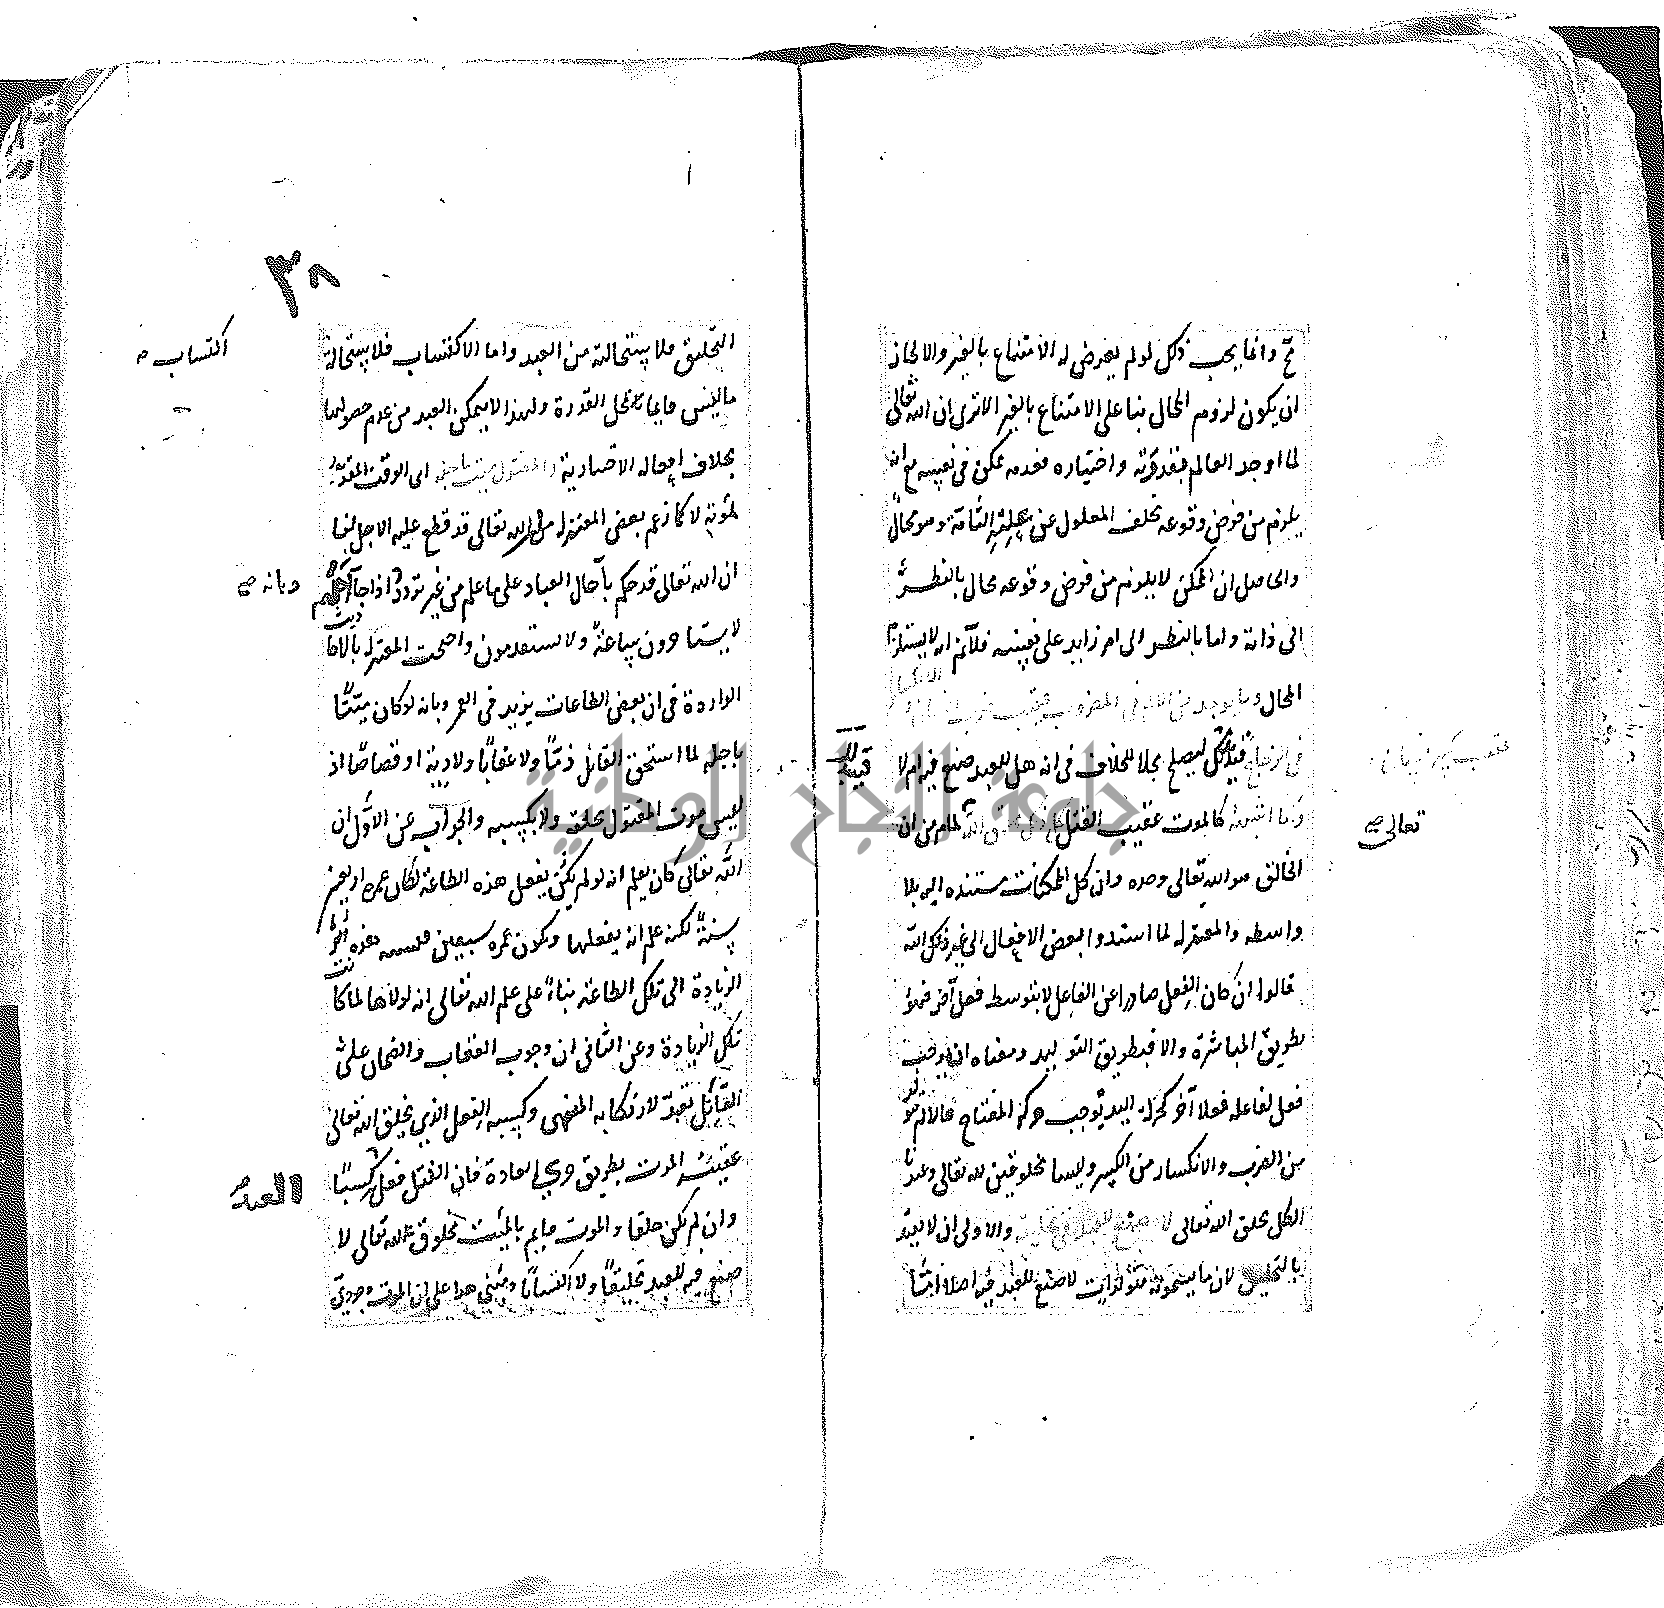 مح وانما يجب ذلك لو لم يعرض له الامتناع بالغير والا لجاز
ان يكون لزوم المحال بناء على الامتناع بالغير الا ترى ان الله تعالى
لما اوجد العالم بقدرته واختياره فعدمه ممكن في نفسه مع انه
يلزم من فرض وقوعه تخلف المعلول عن علته التامة وهو محال
والحاصل ان الممكن لا يلزم من فرض وقوعه محال بالنظر
الى ذاته واما بالنظر الى امر زايد على نفسه فلا نم انه لا يستلزم
المحال وما يوجد من الالم في المضروب عقيب ضرب
في الزجاج قيد بذلك ليصلح محلا للخلاف في انه هل للعبد صنع فيه ام لا
وما اشبهه كالموت عقيب القتل كل ذلك مخلوق الله لما مر من ان
الخالق هو الله تعالى وحده وان كل الممكنات مستنده اليه بلا
واسطه والمعتزله لما اسندوا بعض الافعال الى غير ذلك الله
قالوا ان كان الفعل صادرا عن الفاعل لا بتوسط فعل آخر فهو
بطريق المباشرة والا فبطريق التوليد ومعناه ان يوجب
فعل لفاعله فعلا آخر كحركة اليد توجب حركة المفتاح فالالم
من الضرب والانكسار من الكسر وليسا مخلوقين لله تعالى وعندنا
الكل بخلق الله تعالى لا صنع للعبد في تخليقه والاولى ان لا يقيد
بالتخليق لان ما يسمونه متولدات لا صنع للعبد فيه اصلا اما
تعالى صح
٣٨
التخليق فلاستحالته من العبد واما الاكتساب فلاستحالة
ما ليس قايما بمحل القدرة ولهذا لا يتمكن العبد من عدم حصولها
بخلاف افعاله الاختيارية والمقتول ميت باجله اى الوقت المقدر
لموته لا كما زعم بعض المعتزله من ان الله تعالى قد قطع عليه الاجل لنا
ان الله تعالى قد حكم بآجال العباد على ما علم من غير تردد اذا جآ اجلهم
لا يستاخرون ساعة ولا يستقدمون واحتجت المعتزله بالاحاديث
الواردة في ان بعض الطاعات يزيد في العمر وبانه لو كان ميتا
باجله لما استحق القاتل ذما ولا عقابا ولا دية او قصاصا اذ
ليس موت المقتول بخلقه ولا بكسبه والجواب عن الاول ان
الله تعالى كان يعلم انه لو لم يكن يفعل هذه الطاعة لكان عمره اربعين
سنة لكنه علم انه يفعلها ويكون عمره سبعين فنسبت هذه
الزيادة الى تلك الطاعة بناء على علم الله تعالى انه لولاها لما كانت
تلك الزيادة وعن الثاني ان وجوب العقاب والضمان على
القاتل تعبد لارتكابه المنهى وكسبه الفعل الذي يخلق الله تعالى
عقيبه الموت بطريق جري العادة فان القتل فعل كسبا
وان لم يكن خلقا والموت قايم بالميت مخلوق لله تعالى لا
صنع فيه للعبد تخليقا ولا اكتسابا ومبنى هذا على ان الموت وجودي
اكتساب
وبانه صح
العبد